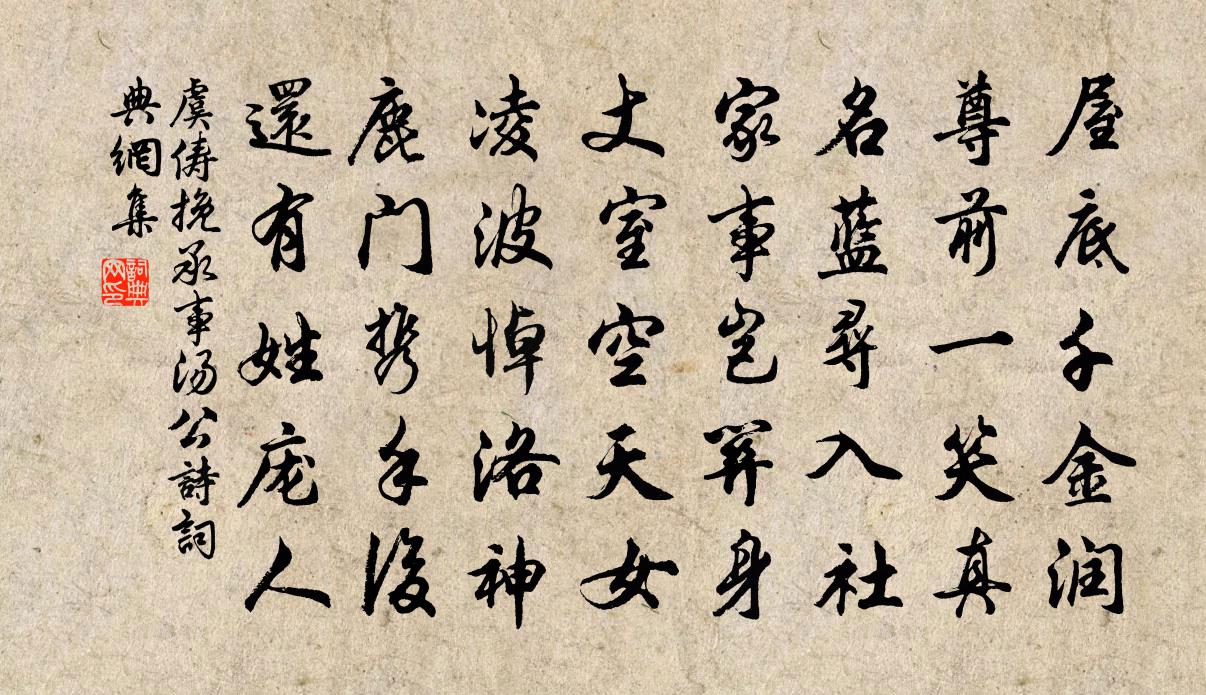 屋底千金润
尊前一笑真
名藍尋入社
家事岂筭身
丈室空天女
凌波悼洛神
鹿门携手後
還有姓庞人
虞俦挽承事汤公詩詞
典網集
詞典
网印